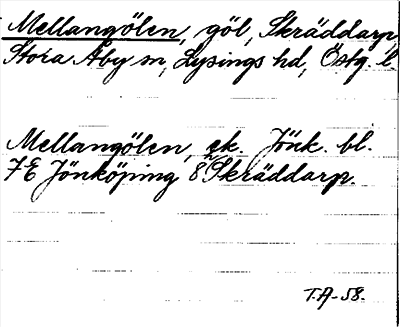 Mellangölen, göl, Skräddarp,
Stora Åby sn, Lysings hd, Östg. l.
Mellangölen, ek. Jönk. bl.
7E Jönköping 8 Skräddarp.
T.A-58.